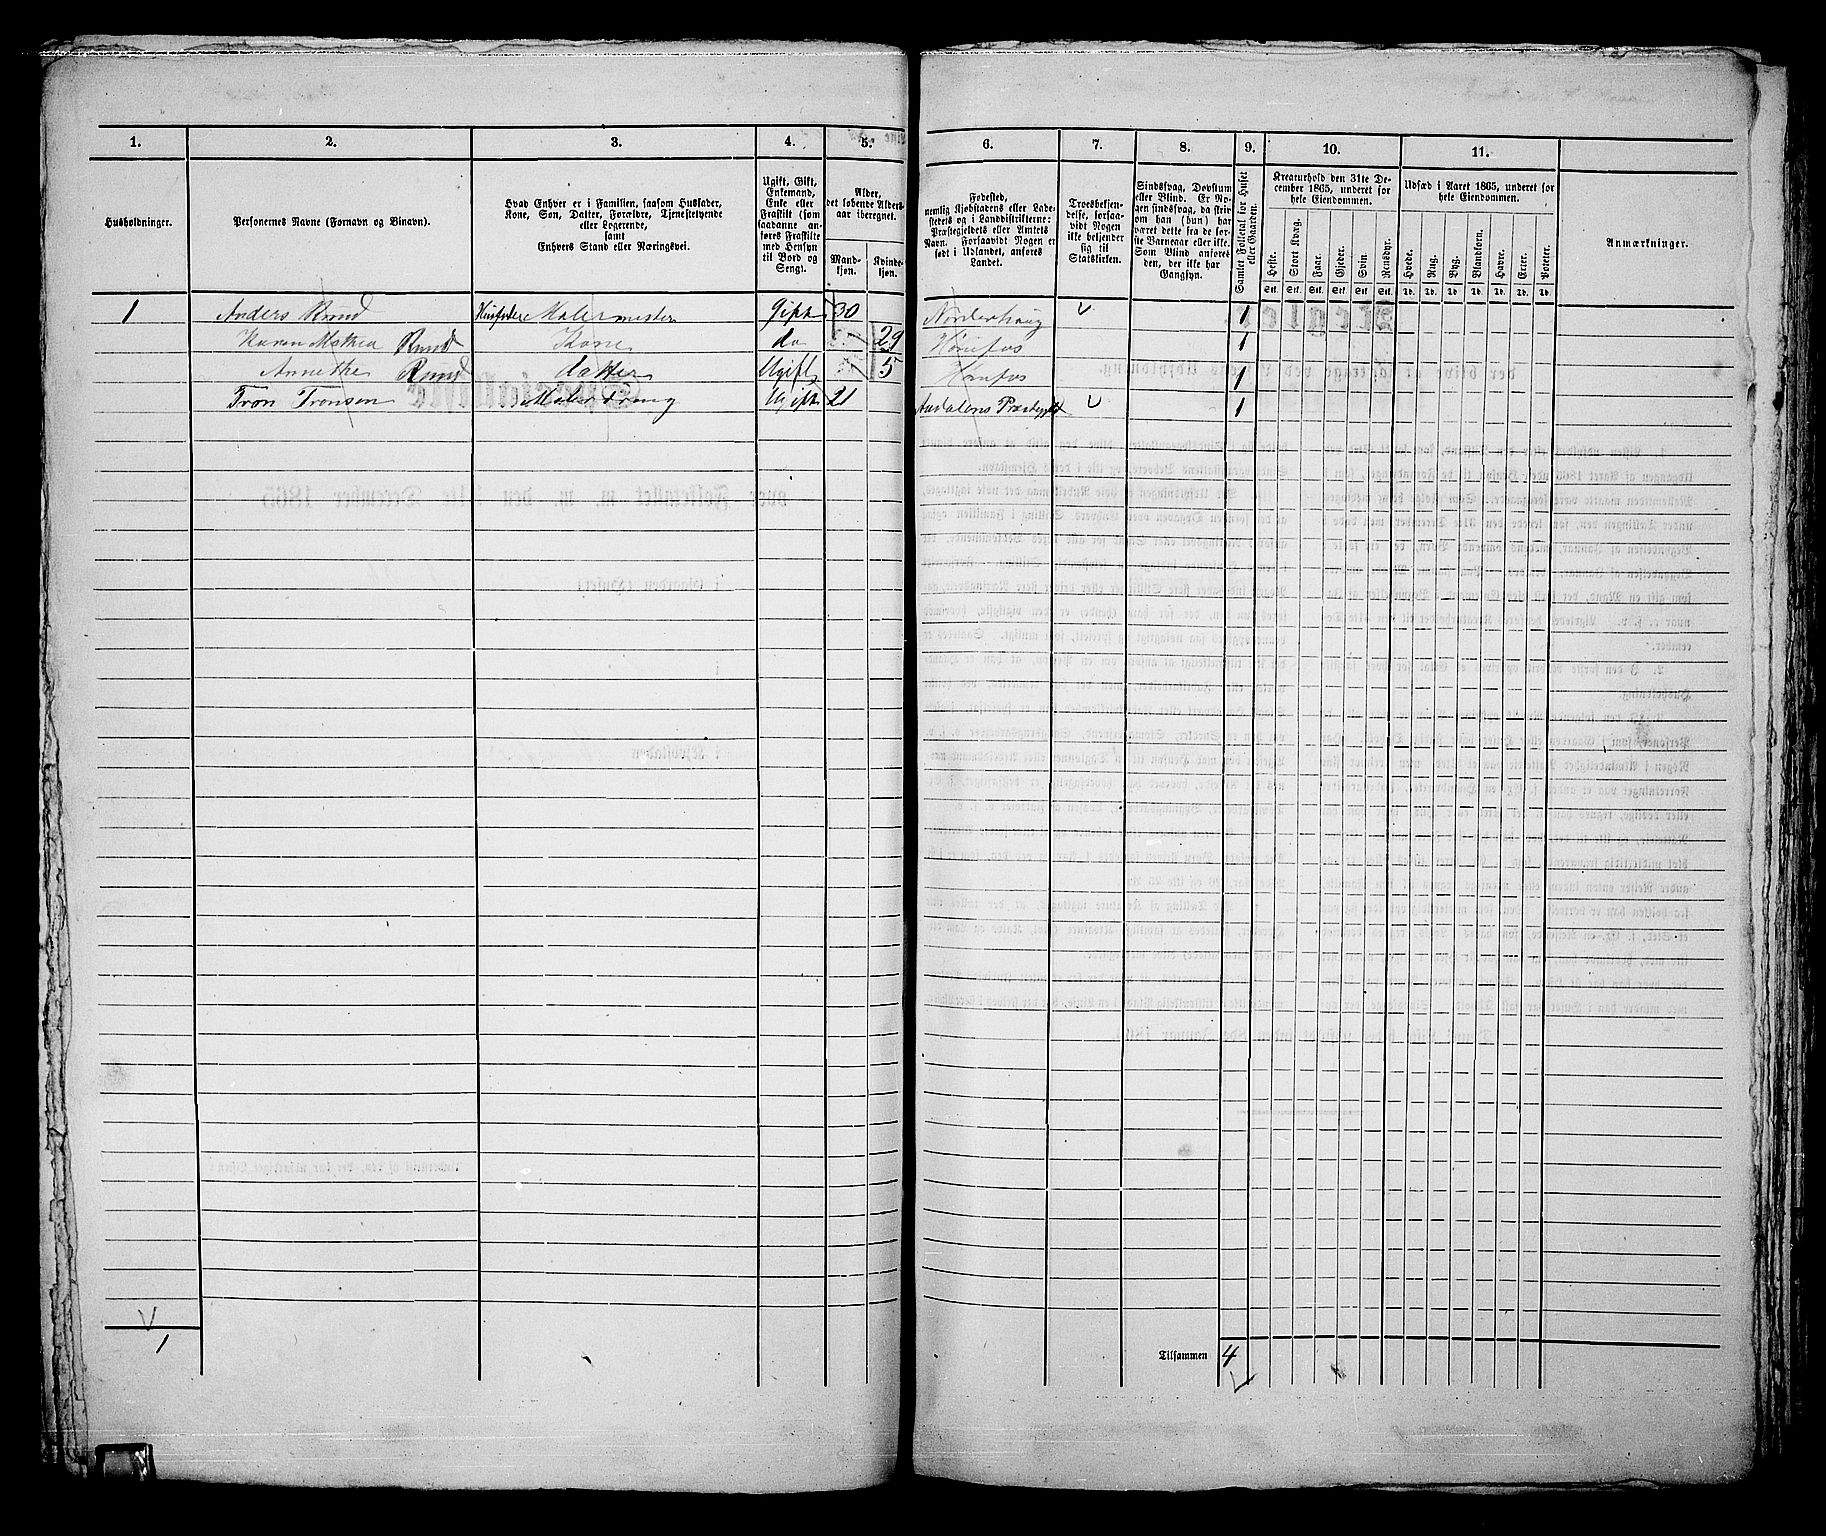 1. 2. 3. 4. 5. 6. 7. 8. 9. 10. 11.
Husholdninger.
Personernes Navne (Fornavn og Binavn).
Hvad Enhver er i Familien, saasom Husfader,
Kone, Søn, Datter, Forældre, Tjenestetyende
eller Logerende,
samt
Enhvers Stand eller Næringsvei.
Ugift, Gift,
Enkemand,
Enke eller
Fraskilt (som
saadanne an-
føres Fraskilte
med Hensyn
til Bord og
Seng).
Alder,
det løbende Alders-
aar iberegnet.
Mand-
kjøn.
Kvinde-
kjøn.
Fødested,
nemlig Kjøbstadens eller Lade-
stedets og i Landdistrikterne:
Præstegjeldets eller Amtets
Navn. Forsaavidt Nogen er
født i Udlandet, anføres
Landet.
Troesbekjen-
delse, forsaa-
vidt Nogen
ikke bekjender
sig til
Statskirken.
Sindssvag, Døvstum
eller Blind. Er No-
gen sindssvag, da skriv
om han (hun) har
været dette fra de før-
ste Barneaar eller ikke.
Som Blind anføres
den, der ikke har
Gangsyn.
Samlet Folketal for Huset
eller Gaarden.
Kreaturhold den 31te De-
cember 1865, underet for
hele Eiendommen.
Heste. Stort Kvæg. Faar. Gjeder. Svin. Rensdyr.
Stk. Stk. Stk. Stk. Stk. Stk.
Udsæd i Aaret 1865, underet for
hele Eiendommen.
Hvede. Rug. Byg. Blandkorn. Havre. Erter. Poteter.
Td. Td. Td. Td. Td. Td. Td.
Anmærkninger.
1 Anders Ruud Husfader Malermester gift 30 Norderhoug 1
Karen Mathea Ruud Kone do 29 Hønefos 1
Annethe Ruud datter Ugift 5 Hønefos 1
Tron Tronsen Malerdreng Ugift 21 Aadalens Præstegjeld 1
1
Tilsammen 4